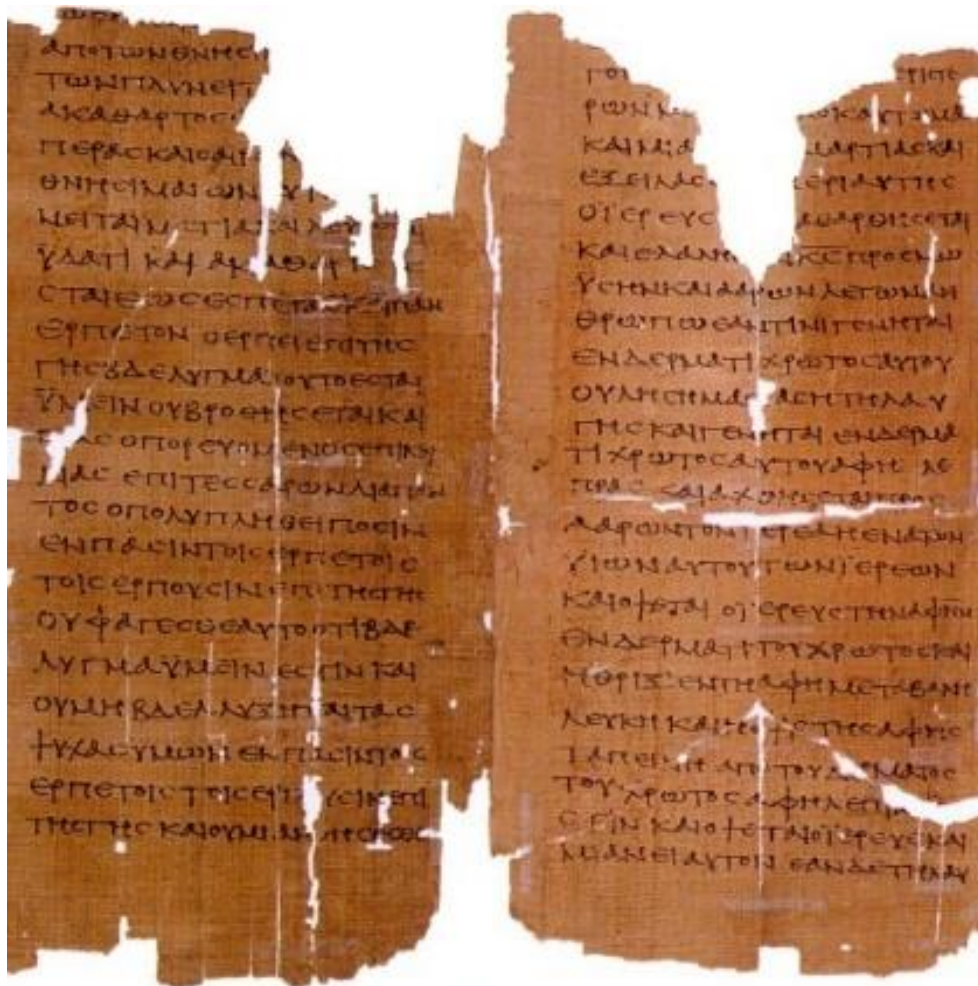 ΑΠΟΤΩΝΘΝΗϹΙ
ΤΩΝΠΛΥΝΕΙΤ
ΑΚΑΘΑΡΤΟϹ
ΠΕΡΑϹΚΑΙΟΑΙ
ΘΝΗϹΙΜΑΙΩΝ
ΝΕΙΤΑΙΜΑΤΙΑΚΑΙΛΟΥ
ΫΔΑΤΙΚΑΙΑΚΑΘΑΡΤΟϹΕ
ϹΤΑΙΕΩϹΕϹΠΕΡΑϹΚΑΙΠΑΝ
ΕΡΠΕΤΟΝΟΕΡΠΕΙΕΠΙΤΗϹ
ΓΗϹΒΔΕΛΥΓΜΑΤΟΥΤΟΕϹΤΑΙ
ΫΜΕΙΝΟΥΒΡΩΘΗϹΕΤΑΙΚΑΙ
ΠΑϹΟΠΟΡΕΥΟΜΕΝΟϹΕΠΙΚΟΙ
ΛΙΑϹΕΠΙΤΕϹϹΑΡΩΝΔΙΑΠΑΝ
ΤΟϹΟΠΟΛΥΠΛΗΘΕΙΠΟϹΙΝ
ΕΝΠΑϹΙΝΤΟΙϹΕΡΠΕΤΟΙϹ
ΤΟΙϹΕΡΠΟΥϹΙΝΕΠΙΤΗϹΓΗϹ
ΟΥΦΑΓΕϹΘΕΑΥΤΟΟΤΙΒΔΕ
ΛΥΓΜΑΫΜΕΙΝΕϹΤΙΝΚΑΙ
ΟΥΜΗΒΔΕΛΥΞΗΤΑΙΤΑϹ
ΨΥΧΑϹΥΜΩΝΕΝΠΑϹΙΝΤΟΙϹ
ΕΡΠΕΤΟΙϹΤΟΙϹΕΡΠΟΥϹΙΝΕΠΙ
ΤΗϹΓΗϹΚΑΙΟΥΜΙΑΝΘΗϹΕϹΘΕ
ΓΟΝ ΕΡΙϹΤΕ
ΡΩΝΜ ΟΚΑΥΤΩΜΑ
ΚΑΙΜΙΑ ΜΑΡΤΙΑϹΚΑΙ
ΕΞΕΙΛΑϹ ΠΕΡΙΑΥΤΗϹ
ΟΪΕΡΕΥϹ ΚΑΘΑΡΘΗϹΕΤΑΙ
ΚΑΙΕΛΑΛΗ ΚϹΠΡΟϹΜΩ
ΫϹΗΝΚΑΙΑΑΡΩΝΛΕΓΩΝΑΝ
ΘΡΩΠΩΕΑΝΤΙΝΙΓΕΝΗΤΑΙ
ΕΝΔΕΡΜΑΤΙΧΡΩΤΟϹΑΥΤΟΥ
ΟΥΛΗϹΗΜΑϹΙΑϹΗΤΗΛΑΥ
ΓΗϹΚΑΙΓΕΝΗΤΑΙΕΝΔΕΡΜΑ
ΤΙΧΡΩΤΟϹΑΥΤΟΥΑΦΗΛΕ
ΠΡΑϹΚΑΙΑΧΘΗϹΕΤΑΙΠΡΟϹ
ΑΑΡΩΝΤΟΝΪΕΡΕΑΗΕΝΑΤΩΝ
ΫΙΩΝΑΥΤΟΥΤΩΝΪΕΡΕΩΝ
ΚΑΙΟΨΕΤΑΙΟΪΕΡΕΥϹΤΗΝΑΦΗΝ
ΕΝΔΕΡΜΑΤΙΤΟΥΧΡΩΤΟϹΚΑΙ
ΗΘΡΙΞΕΝΤΗΑΦΗΜΕΤΑΒΑΛΗ
ΛΕΥΚΗΚΑΙΗΟΨΙϹΤΗϹΑΦΗϹ
ΤΑΠΕΙΝΗΑΠΟΤΟΥΔΕΡΜΑΤΟϹ
ΤΟΥΧΡΩΤΟϹΑΦΗΛΕΠ
ΕϹΤΙΝΚΑΙΟΨΕΤΑΙΟΪΕΡΕΥϹΚΑΙ
ΜΙΑΝΕΙΑΥΤΟΝΕΑΝΔΕΤΗΛΑΥ